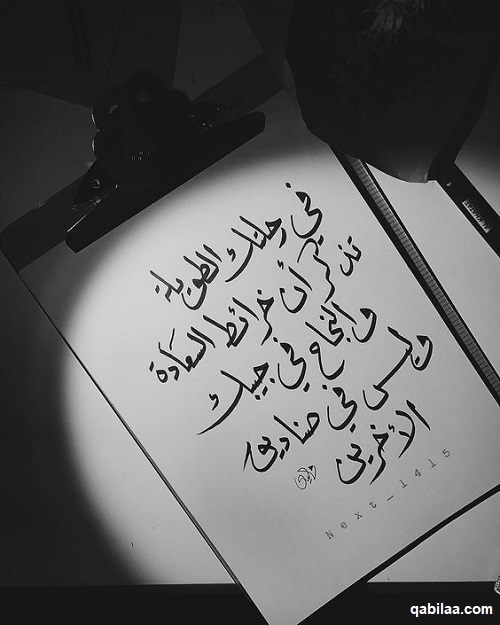 في رحلتك الطويلة
تذكر أن خرائط السعادة
والنجاح في جيبك
وليس في صناديق
الأخرين
Next_1415
qabilaa.com